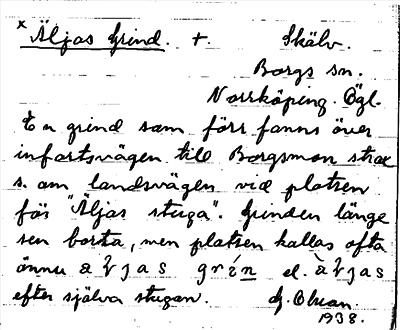 x Äljas Grind. +. Skälv.
Borgs sn.
Norrköping. Ögl.
En grind som förr fanns över
infartsvägen till Borgsmon strax
s. om landsvägen vid platsen
för "Äljas stuga". Grinden länge
sen borta, men platsen kallas ofta
ännu äljas grén el. äljas
efter själva stugan. G.
1938.